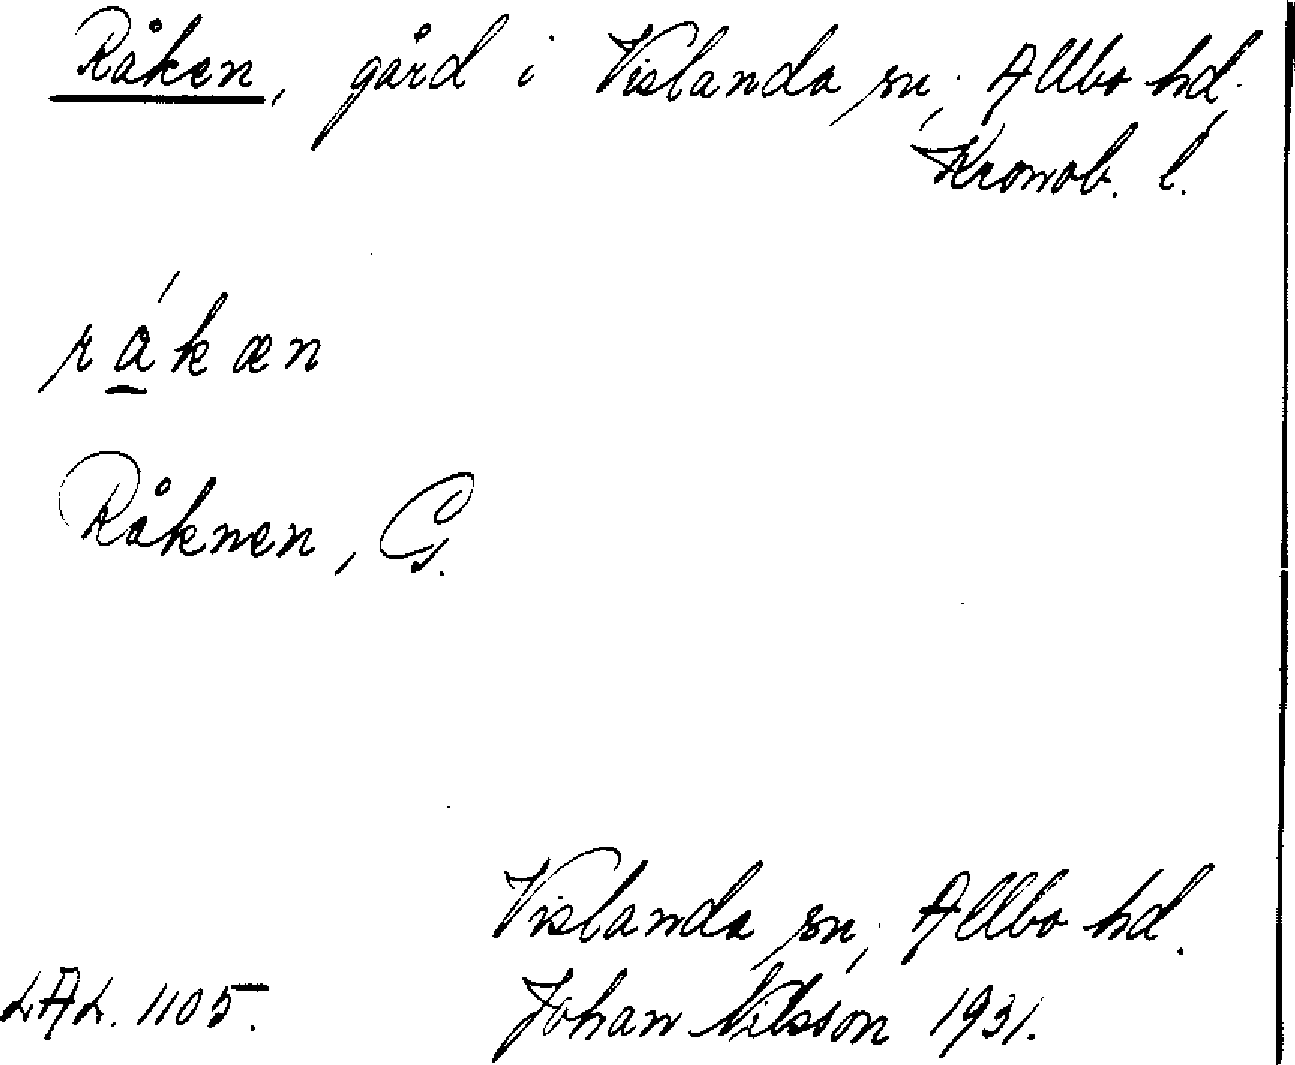 Råken, gård i Vislanda sn, Allbo hd,
Kronob. l.
rákæn
Råknen, G.
Vislanda sn, Allbo hd.
LAL. 1105. Johan Nilsson 1931.